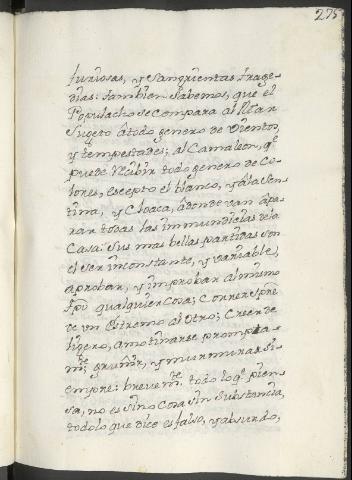 275
furiosas, y Sangrientas trage-
dias: tambien sabemos, que el
Populacho se compara al Mar
Sugeto â todo genero de Vientos,
y tempestades; al Camaleon, qͤ
puede recibir todo genero de Co-
lores, escepto el blanco, y â la Sen-
tina, y Cloaca, â donde van â pa-
rar todas las immundicias de la
Casa: Sus mas bellas partidas son
el ser inconstante, y variable,
aprobar, y improbar al mismo
tpõ qualquier cosa; Correr spre
de un Estremo al Otro; Creer de
ligero, amotinarse prompta-
mͭͤ, gruñir, y murmurar si-
empre: brevemͭͤ todo lo qͤ pien-
sa, no es sino cosa sin substancia,
todo lo que dice es falso, y absurdo,